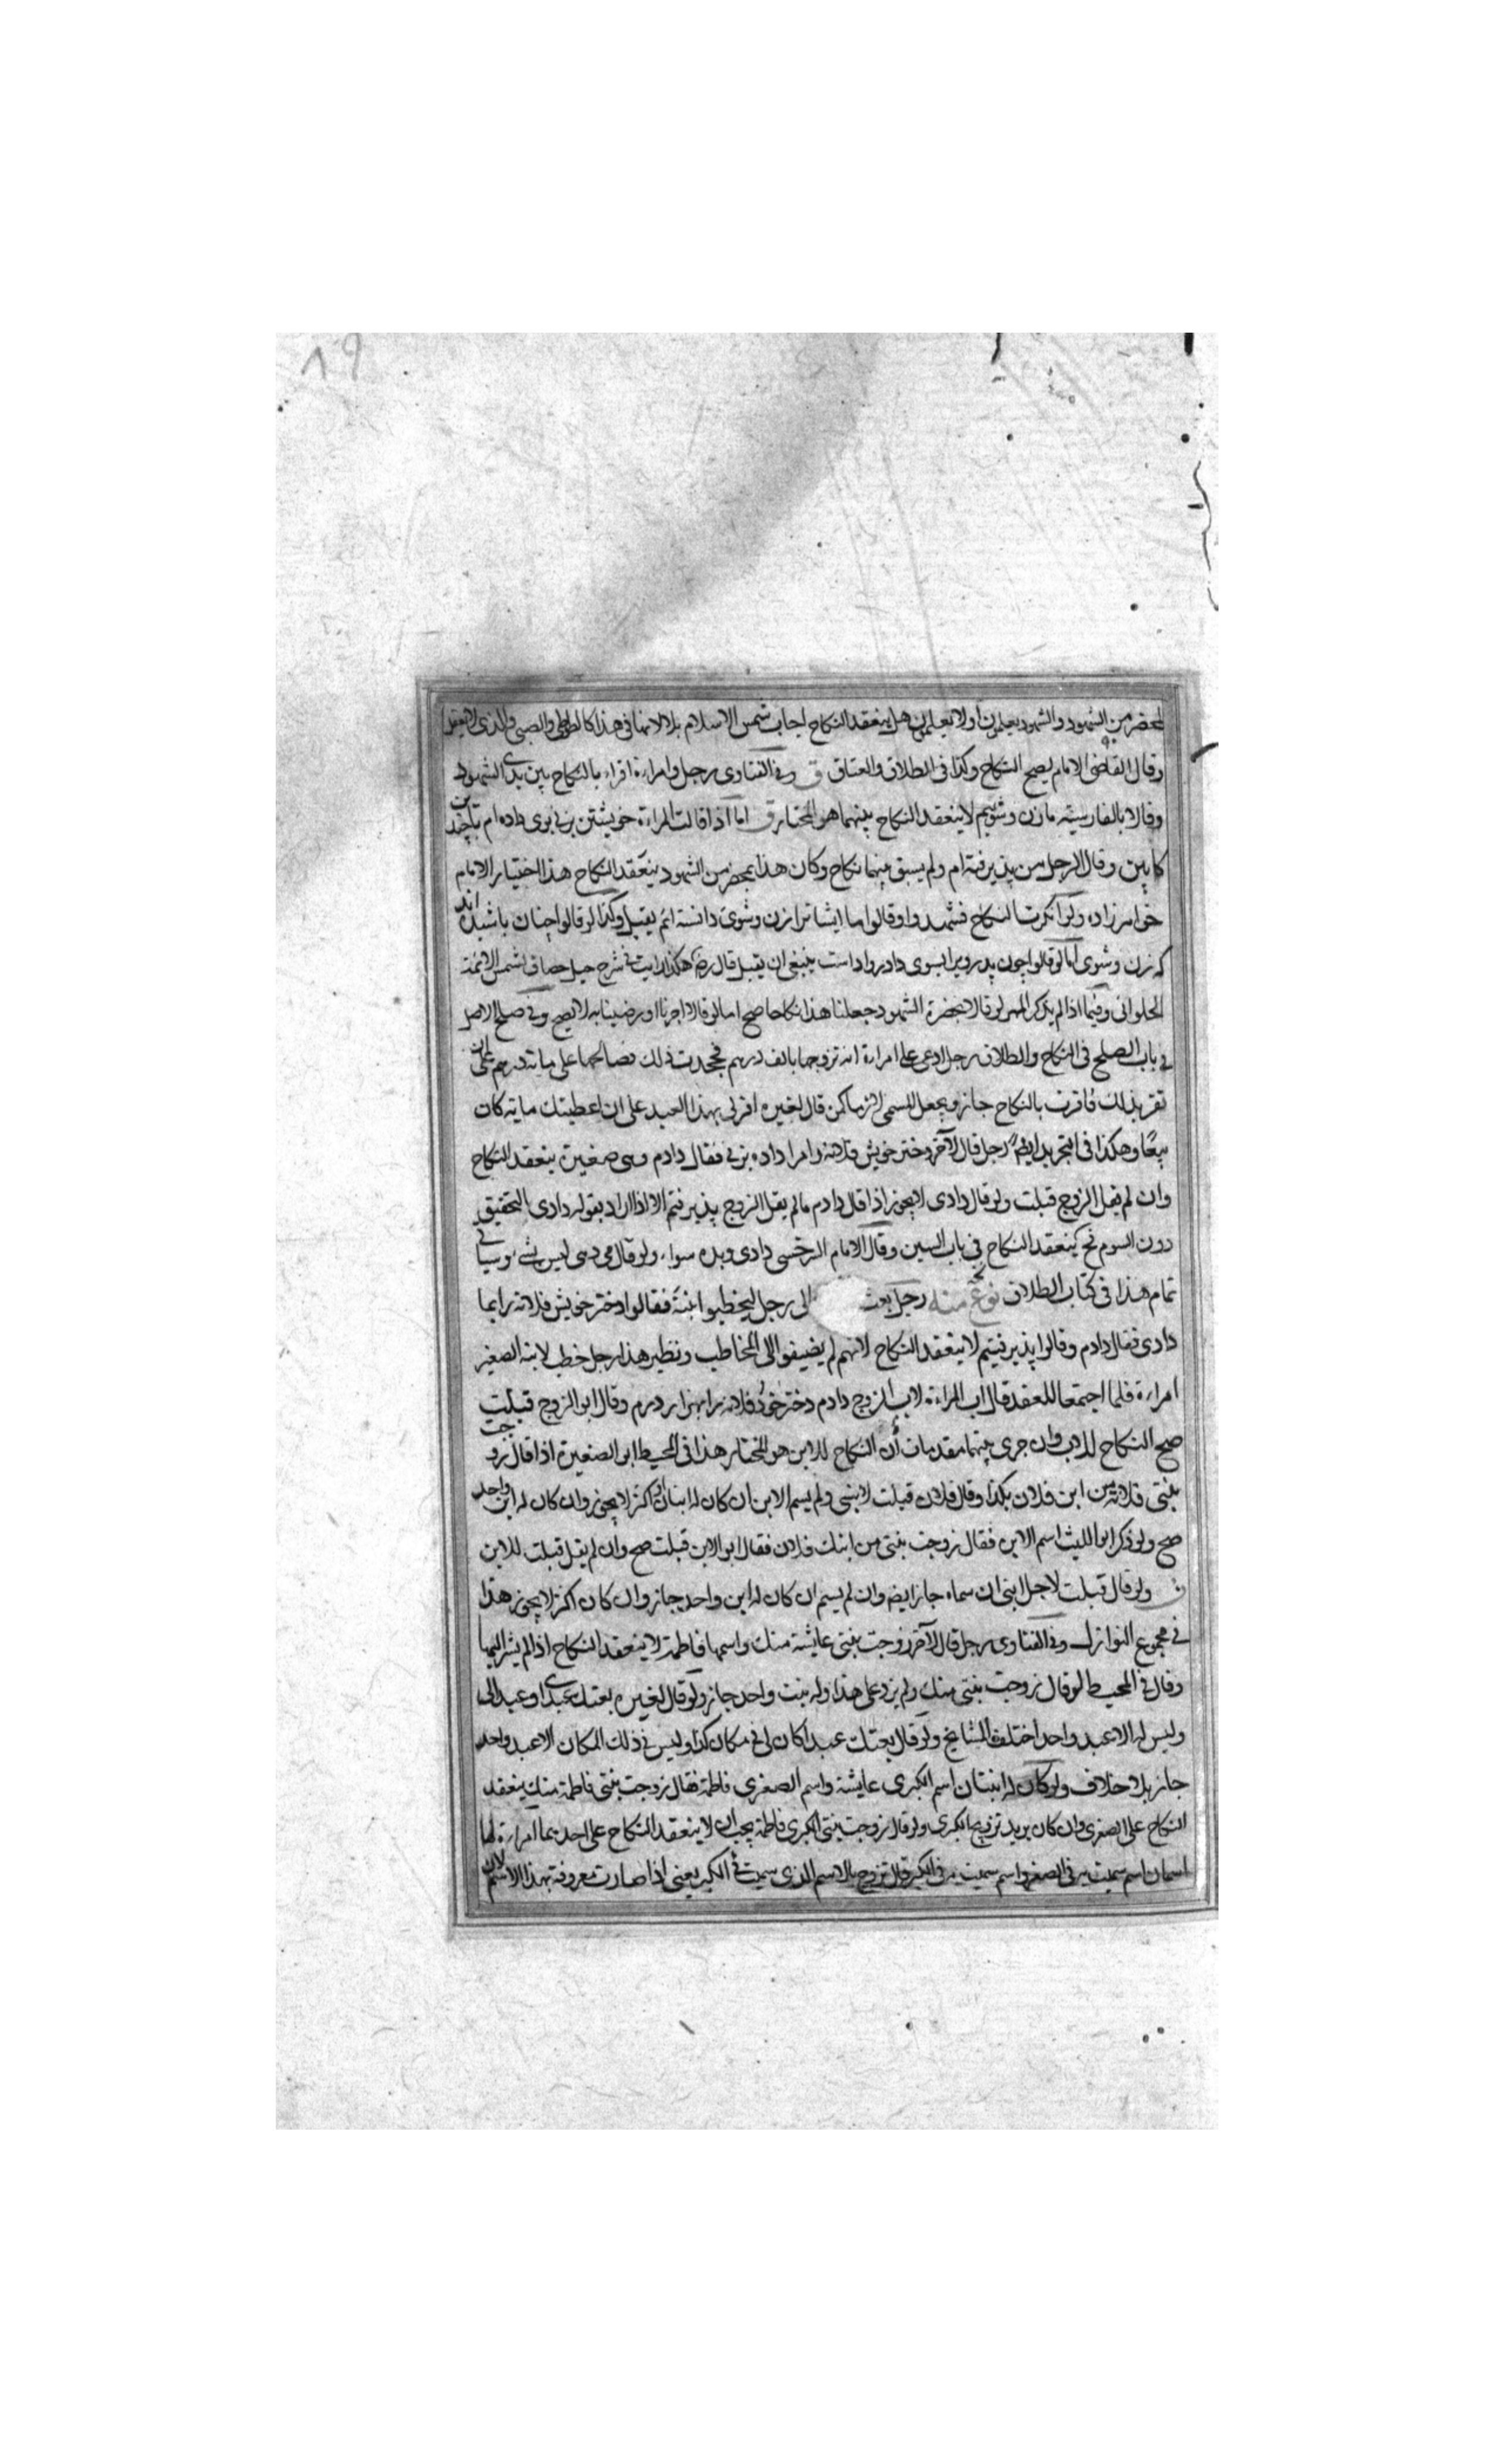 ٨٩
بمحضر من الشهود والشهود يعلمون اولا يعلمون هل ينعقد النكاح اجاب شمس الاسلام بلا لانها في هذا كالطوطى والصبى والذى لا يعقل
وقال القاضى الامام يصح النكاح وكذا فى الطلاق والعتاق ق وفى الفتاوى رجل وامراءة اقراء بالنكاح بين يدى الشهود
وقالا بالفارسية مازن وشوييم لا ينعقد النكاح بينهما هو المختار ق اما اذا قالت المراءة خويشتن بزنى بوى داده ام بچندين
كابين وقال الرجل من پذيرفته ام ولم يسبق بينهما نكاح وكان هذا بمحضر من الشهود ينعقد النكاح هذا اختيار الامام
خواهر زاده ولو انكرت النكاح فشهدوا وقالوا ما ايشانرا زن وشوى دانسته ايم يقبل وكذا لو قالوا چنان باشيده اند
كه زن وشوى اما لو قالوا چون پدر ويرا بسوى داد روا داست ينبغى ان يقبل قال رضـ هكذا رايت فى شرح حيل خصاف لشمس الائمة
الحلوانى وفيما اذا لم يذكر المهر لو قالا بحضرة الشهود جعلنا هذا نكاحا صح اما لو قالا اجزنا او رضينا به لا يصح وفى صلح الاصل
فى باب الصلح فى النكاح والطلاق رجل ادعى على امراءة انه تزوجها بالف درهم فجحدت ذلك فصالحها على ماية درهم على ان
تقر بذلك فاقرت بالنكاح جاز ويجعل المسمى لازما كمن قال لغيره اقر لى بهذا العبد على ان اعطيتك ماية كان
بيعا وهكذا فى التجريد ايضا رجل قال لآخر دختر خويش فلانه را مرا داده بزنى فقال دادم وهى صغيرة ينعقد النكاح
وان لم يقل الزوج قبلت ولو قال دادى لا يجوز اذا قال دادم ما لم يقل الزوج پذيرفتم الا اذا اراد بقوله دادى التحقيق
دون السوم نح ينعقد النكاح فى باب السين وقال الامام السرخسى دادى وبده سواء ولو قال مى دهى ليس بشىء وسياتى
تمام هذا فى كتاب الطلاق نوع منه رجل بعث الى رجل ليخطبوا ابنته فقالوا دختر خويش فلانه را بما
دادى فقال دادم وقالوا پذيرفتيم لا ينعقد النكاح لانهم لم يضيفوا الى المخاطب ونظير هذا رجل خطب لابنه الصغير
امراءة فلما اجتمعا للعقد قال اب المراءة لاب الزوج دادم دختر خود فلانه را بهزار درم وقال ابو الزوج قبلت
صح النكاح للاب وان جرى بينهما مقدمات أن النكاح للابن هو المختار هذا فى المحيط ابو الصغيرة اذا قال زوجت
بنتى فلانة من ابن فلان بكذا وقال فلان قبلت لابنى ولم يسم الابن ان كان له ابنان او اكثر لا يجوز وان كان له ابن واحد
صح ولو ذكر ابو الليث اسم الابن فقال زوجت بنتى من ابنك فلان فقال ابو الابن قبلت صح وان لم يقل قبلت للابن
ق ولو قال قبلت لاجل ابنى ان سماه جاز ايضا وان لم يسم ان كان له ابن واحد جاز وان كان اكثر لا يجوز هذا
فى مجموع النوازل وفى الفتاوى رجل قال لآخر زوجت بنتى عايشة منك واسمها فاطمة لا ينعقد النكاح اذا لم يشر اليها
وقال فى المحيط لو قال زوجت بنتى منك ولم يزد على هذا وله بنت واحد جاز ولو قال لغيره بعتك عبدى او عبدا لى
وليس له الا عبد واحد اختلف المشايخ ولو قال بعتك عبدا كان لى فى مكان كذا وليس فى ذلك المكان الا عبد واحد
جاز بلا خلاف ولو كان له ابنتان اسم الكبرى عايشة واسم الصغرى فاطمة فقال زوجت بنتى فاطمة منك ينعقد
النكاح على الصغرى وان كان يريد تزويج الكبرى ولو قال زوجت بنتى الكبرى فاطمة يجب ان لا ينعقد النكاح على احديهما امراءة لها
اسمان اسم سميت به فى الصغر واسم سميت به فى الكبر قال تزوج بالاسم الذى سميت فى الكبر يعنى اذا صارت معروفة بهذا الاسم لان